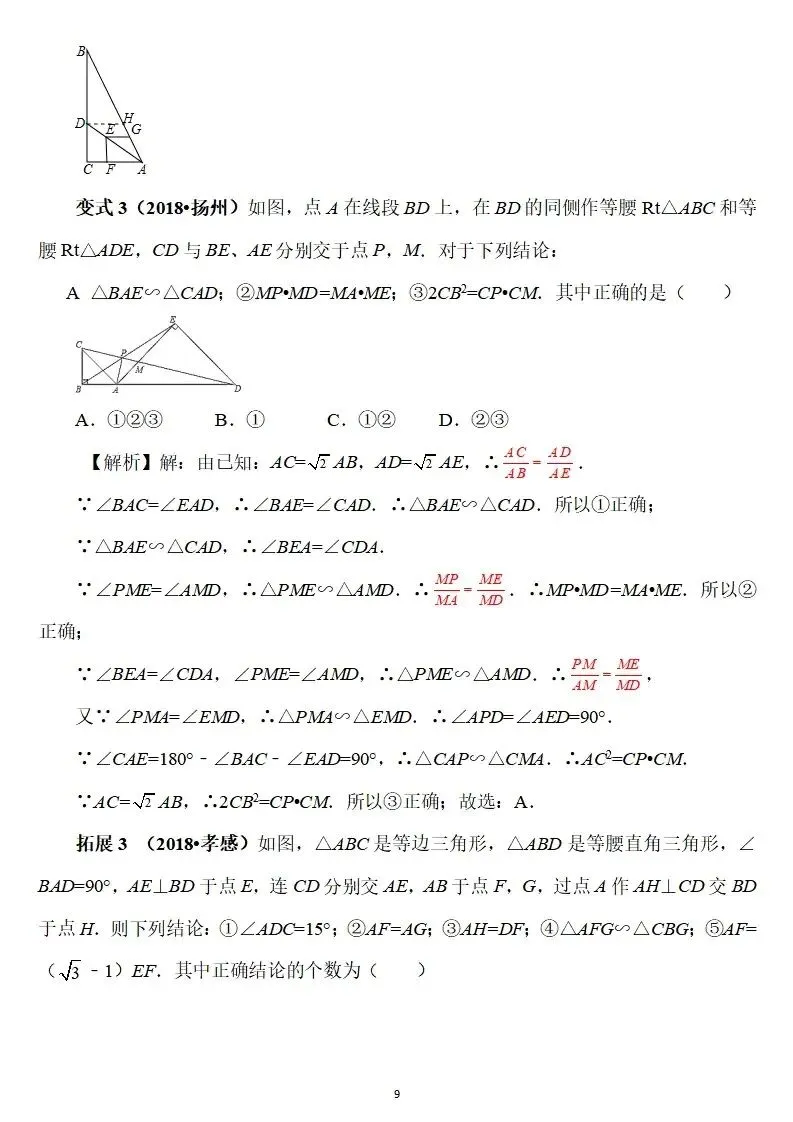 B
D
E
H
G
C F A
变式 3（2018•扬州）如图，点 A 在线段 BD 上，在 BD 的同侧作等腰 Rt△ABC 和等
腰 Rt△ADE，CD 与 BE、AE 分别交于点 P，M．对于下列结论：
A △BAE∽△CAD；②MP•MD=MA•ME；③2CB²=CP•CM．其中正确的是（　　）
E
C
P
M
B A D
A．①②③ B．① C．①② D．②③
【解析】解：由已知：AC=√2 AB，AD=√2 AE，∴AC/AB=AD/AE．
∵∠BAC=∠EAD，∴∠BAE=∠CAD．∴△BAE∽△CAD．所以①正确；
∵△BAE∽△CAD，∴∠BEA=∠CDA．
∵∠PME=∠AMD，∴△PME∽△AMD．∴MP/MA=ME/MD．∴MP•MD=MA•ME．所以②
正确；
∵∠BEA=∠CDA，∠PME=∠AMD，∴△PME∽△AMD．∴PM/AM=ME/MD，
又∵∠PMA=∠EMD，∴△PMA∽△EMD．∴∠APD=∠AED=90°．
∵∠CAE=180°﹣∠BAC﹣∠EAD=90°，∴△CAP∽△CMA．∴AC²=CP•CM．
∵AC=√2 AB，∴2CB²=CP•CM．所以③正确；故选：A．
拓展 3 （2018•孝感）如图，△ABC 是等边三角形，△ABD 是等腰直角三角形，∠
BAD=90°，AE⊥BD 于点 E，连 CD 分别交 AE，AB 于点 F，G，过点 A 作 AH⊥CD 交 BD
于点 H．则下列结论：①∠ADC=15°；②AF=AG；③AH=DF；④△AFG∽△CBG；⑤AF=
（√3﹣1）EF．其中正确结论的个数为（　　）
9